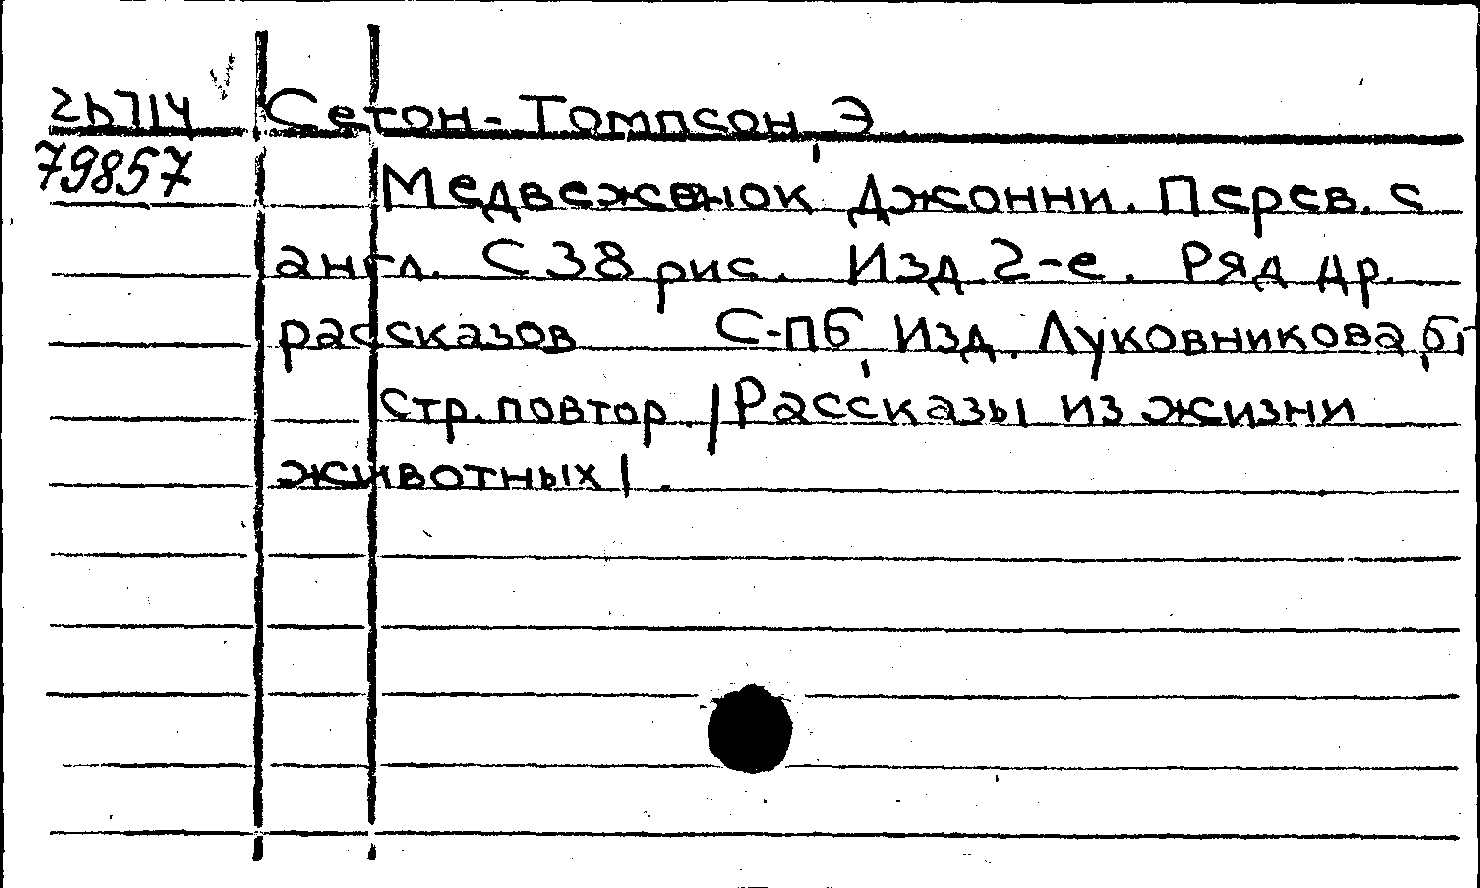 2Ь714 Сетон-Томпсон, Э.
79857
Медвежонок Джонни. Перев. с
англ. С 38 рис. Изд. 2-е. Ряд др.
рассказов С-Пб, Изд. Луковникова, бг
Стр. повтор. /Рассказы из жизни
животных/.